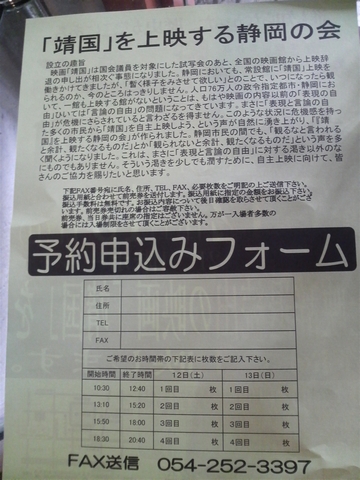 「靖国」を上映する静岡の会
設立の趣旨
映画「靖国」は国会議員を対象にした試写会のあと、全国の映画館から上映辞
退の申し出が相次ぐ事態になりました。静岡においても、常設館に「靖国」上映を
働きかけてきましたが、「暫く様子をみさせて欲しい」とのことで、いつになったら観
られるのか、今のところはっきりしません。人口76万人の政令指定都市・静岡にお
いて、一館も上映する館がないということは、もはや映画の内容以前の「表現の自
由」ひいては「言論の自由」の問題になってきています。まさに「表現と言論の自由」
が危機にさらされていると言わざるを得ません。このような状況に危機感を持っ
た多くの市民から「靖国」を自主上映しよう、という声が自然に湧き上がり、『「靖
国」を上映する静岡の会』が作られました。静岡市民の間でも、「観るなと言われる
と余計、観たくなるものだ」とか「観られないと余計、観たくなるもの」という声を多
く聞くようになりました。これは、まさに「表現と言論の自由」に対する渇き以外のな
にものでもありません。そういう渇きを少しでも潤すために、自主上映に向けて、皆
さんのご協力を賜りたいと思います。
下記FAX番号宛に氏名、住所、TEL、FAX、必要枚数をご明記の上ご送信下さい。
予約申込みフォーム
氏名
住所
TEL
FAX
ご希望のお時間帯の下記表に枚数をご記入下さい。
開始時間 終了時間 12日(土) 13日(日)
10:30 12:40 1回目 枚 1回目 枚
13:10 15:20 2回目 枚 2回目 枚
15:50 18:00 3回目 枚 3回目 枚
18:30 20:40 4回目 枚 4回目 枚
FAX送信 054-252-3397